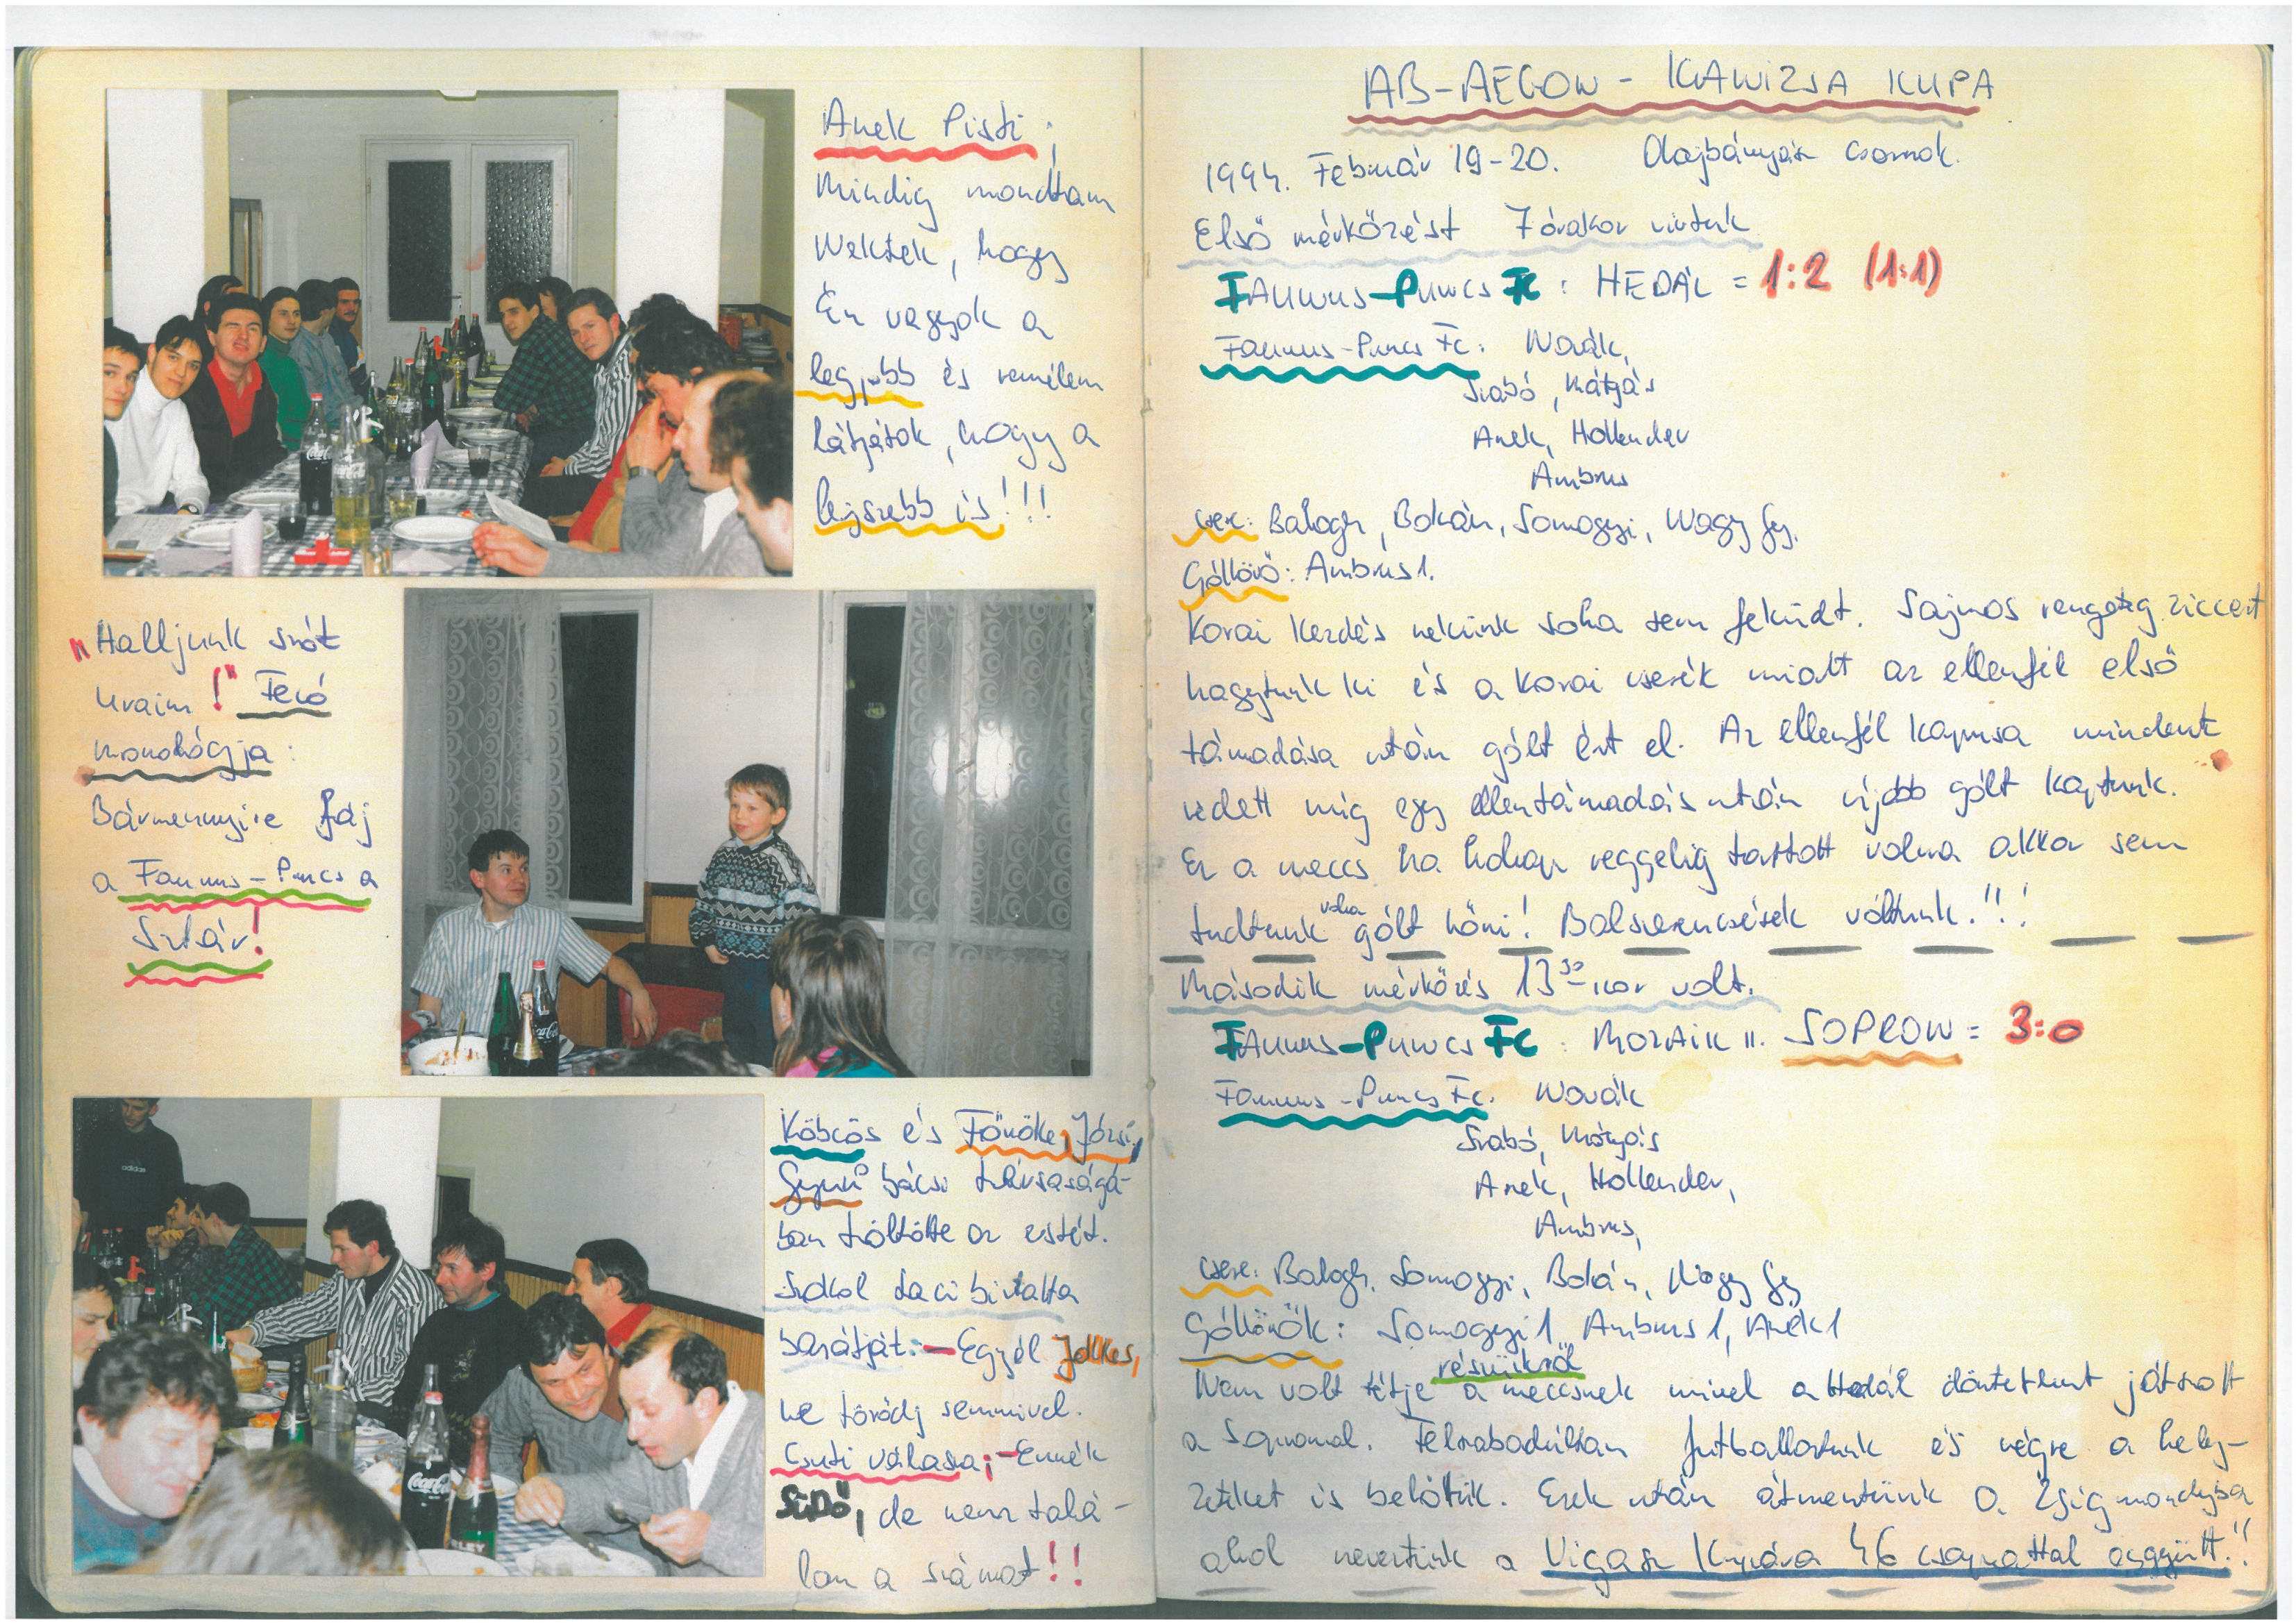 Anek Pisti:
Mindig mondtam
Nektek, hogy
Én vagyok a
legjobb és remélem
látjátok, hogy a
legszebb is!!!
"Halljunk szót
Uraim!" Fecó
monológja:
Bármennyire fáj
a Faunus-Puncs a
Sztár!
Köbcös és Főnöke, Józsi,
Gyuri bácsi társaságá-
ban töltötte az estét.
Szokol Laci bíztatta
barátját: - Egyél Jolles,
ne törődj semmivel.
Csuti válasza; - Ennék
SÜDŐ, de nem talá-
lom a számat!!
adidas
Coca-Cola
AB-AEGON - KANIZSA KUPA
1994. Február 19-20. Olajbányász csarnok.
Első mérkőzést 7 órakor vívtuk
FAUNUS-PUNCS FC : HEDÁL = 1:2 (1:1)
Faunus-Puncs Fc: Novák,
Szabó, Mátyás
Anek, Hollender
Ambrus
csere: Balogh, Bokán, Somogyi, Nagy Gy.
Góllövő: Ambrus 1.
Korai kezdés nekünk soha sem feküdt. Sajnos rengeteg ziccert
hagytunk ki és a korai cserék miatt az ellenfél első
támadása után gólt ért el. Az ellenfél kapusa mindent
védett míg egy ellentámadás után újabb gólt kaptunk.
Ez a meccs ha holnap reggelig tartott volna akkor sem
tudtunk volna gólt lőni! Balszerencsések voltunk.!!!
Második mérkőzés 13 30-kor volt.
FAUNUS-PUNCS FC : MOZAIK II. SOPRON = 3:0
Faunus-Puncs Fc. Novák
Szabó, Mátyás
Anek, Hollender,
Ambrus,
csere: Balogh, Somogyi, Bokán, Nagy Gy
Góllövők: Somogyi 1, Ambrus 1, Anek 1
Nem volt tétje részünkről a meccsnek mivel a Hedál döntetlent játszott
a Sopronnal. Felszabadultan futballoztunk és végre a hely-
zetiket is belőttük. Ezek után átmentünk a Zsigmondyba
ahol neveztünk a Vigasz Kupára 46 csapattal együtt.!!